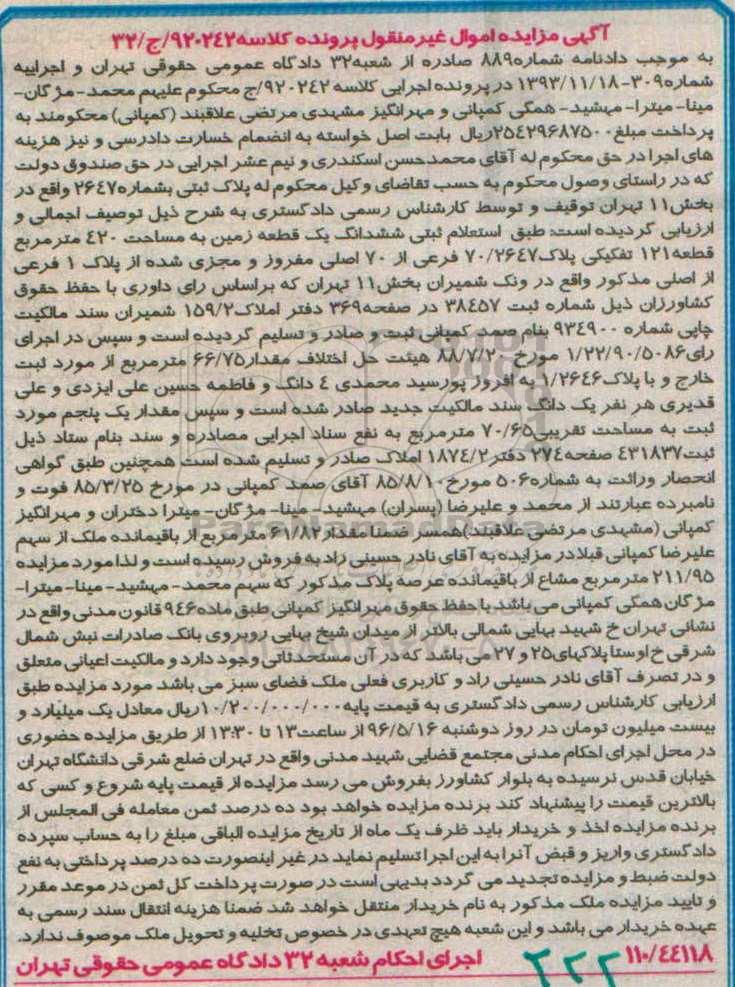 آگهی مزایده اموال غیرمنقول پرونده کلاسه ۹۲۰۲۴۲/ج/۳۲
به موجب دادنامه شماره ۸۸۹ صادره از شعبه ۳۲ دادگاه عمومی حقوقی تهران و اجراییه
شماره ۳۰۹-۱۳۹۳/۱۱/۱۸ در پرونده اجرایی کلاسه ۹۲۰۲۴۲/ج محکوم علیهم محمد-مژگان-
مینا-میترا-مهشید-همگی کمپانی و مهرانگیز مشهدی مرتضی علاقبند (کمپانی) محکومند به
پرداخت مبلغ ۲۵۴۲۹۶۸۷۵۰۰ریال بابت اصل خواسته به انضمام خسارت دادرسی و نیز هزینه
های اجرا در حق محکوم له آقای محمدحسن اسکندری و نیم عشر اجرایی در حق صندوق دولت
که در راستای وصول محکوم به حسب تقاضای وکیل محکوم له پلاک ثبتی بشماره ۲۶۴۷ واقع در
بخش ۱۱ تهران توقیف و توسط کارشناس رسمی دادگستری به شرح ذیل توصیف اجمالی و
ارزیابی گردیده است: طبق استعلام ثبتی ششدانگ یک قطعه زمین به مساحت ۴۲۰ مترمربع
قطعه ۱۲۱ تفکیکی پلاک ۷۰/۲۶۴۷ فرعی از ۷۰ اصلی مفروز و مجزی شده از پلاک ۱ فرعی
از اصلی مذکور واقع در ونک شمیران بخش ۱۱ تهران که براساس رای داوری با حفظ حقوق
کشاورزان ذیل شماره ثبت ۳۸۴۵۷ در صفحه ۳۶۹ دفتر املاک ۱۵۹/۲ شمیران سند مالکیت
چاپی شماره ۹۳۴۹۰۰ بنام صمد کمپانی ثبت و صادر و تسلیم گردیده است و سپس در اجرای
رای ۱/۲۲/۹۰/۵۰۸۶ مورخ ۸۸/۷/۲۰ هیئت حل اختلاف مقدار ۶۶/۷۵ مترمربع از مورد ثبت
خارج و با پلاک ۱/۲۶۴۶ به افروز پورسید محمدی ۴ دانگ و فاطمه حسین علی ایزدی و علی
قدیری هر نفر یک دانگ سند مالکیت جدید صادر شده است و سپس مقدار یک پنجم مورد
ثبت به مساحت تقریبی ۷۰/۶۵ مترمربع به نفع ستاد اجرایی مصادره و سند بنام ستاد ذیل
ثبت ۴۳۱۸۳۷ صفحه ۲۷۴ دفتر ۱۸۷۴/۲ املاک صادر و تسلیم شده است همچنین طبق گواهی
انحصار وراثت به شماره ۵۰۶ مورخ ۸۵/۸/۱۰ آقای صمد کمپانی در مورخ ۸۵/۳/۲۵ فوت و
نامبرده عبارتند از محمد و علیرضا (پسران) مهشید-مینا-مژگان-میترا دختران و مهرانگیز
کمپانی (مشهدی مرتضی علاقبند) همسر ضمنا مقدار ۶۱/۸۲ مترمربع از باقیمانده ملک از سهم
علیرضا کمپانی قبلا در مزایده به آقای نادر حسینی راد به فروش رسیده است و لذا مورد مزایده
۲۱۱/۹۵ مترمربع مشاع از باقیمانده عرصه پلاک مذکور که سهم محمد-مهشید-مینا-میترا-
مژگان همگی کمپانی می باشد با حفظ حقوق مهرانگیز کمپانی طبق ماده ۹۴۶ قانون مدنی واقع در
نشانی تهران خ شهید بهایی شمالی بالاتر از میدان شیخ بهایی روبروی بانک صادرات نبش شمال
شرقی خ اوستا پلاکهای ۲۵ و ۲۷ می باشد که در آن مستحدثاتی وجود دارد و مالکیت اعیانی متعلق
و در تصرف آقای نادر حسینی راد و کاربری فعلی ملک فضای سبز می باشد مورد مزایده طبق
ارزیابی کارشناس رسمی دادگستری به قیمت پایه ۱۰/۲۰۰/۰۰۰/۰۰۰ریال معادل یک میلیارد و
بیست میلیون تومان در روز دوشنبه ۹۶/۵/۱۶ از ساعت ۱۳ تا ۱۳:۳۰ از طریق مزایده حضوری
در محل اجرای احکام مدنی مجتمع قضایی شهید مدنی واقع در تهران ضلع شرقی دانشگاه تهران
خیابان قدس نرسیده به بلوار کشاورز بفروش می رسد مزایده از قیمت پایه شروع و کسی که
بالاترین قیمت را پیشنهاد کند برنده مزایده خواهد بود ده درصد ثمن معامله فی المجلس از
برنده مزایده اخذ و خریدار باید ظرف یک ماه از تاریخ مزایده الباقی مبلغ را به حساب سپرده
دادگستری واریز و قبض آنرا به این اجرا تسلیم نماید در غیر اینصورت ده درصد پرداختی به نفع
دولت ضبط و مزایده تجدید می گردد بدیهی است در صورت پرداخت کل ثمن در موعد مقرر
و تایید مزایده ملک مذکور به نام خریدار منتقل خواهد شد ضمنا هزینه انتقال سند رسمی به
عهده خریدار می باشد و این شعبه هیچ تعهدی در خصوص تخلیه و تحویل ملک موصوف ندارد.
۱۱۰/۴۴۱۱۸ ۲۲۲ اجرای احکام شعبه ۳۲ دادگاه عمومی حقوقی تهران
ParsNamadData